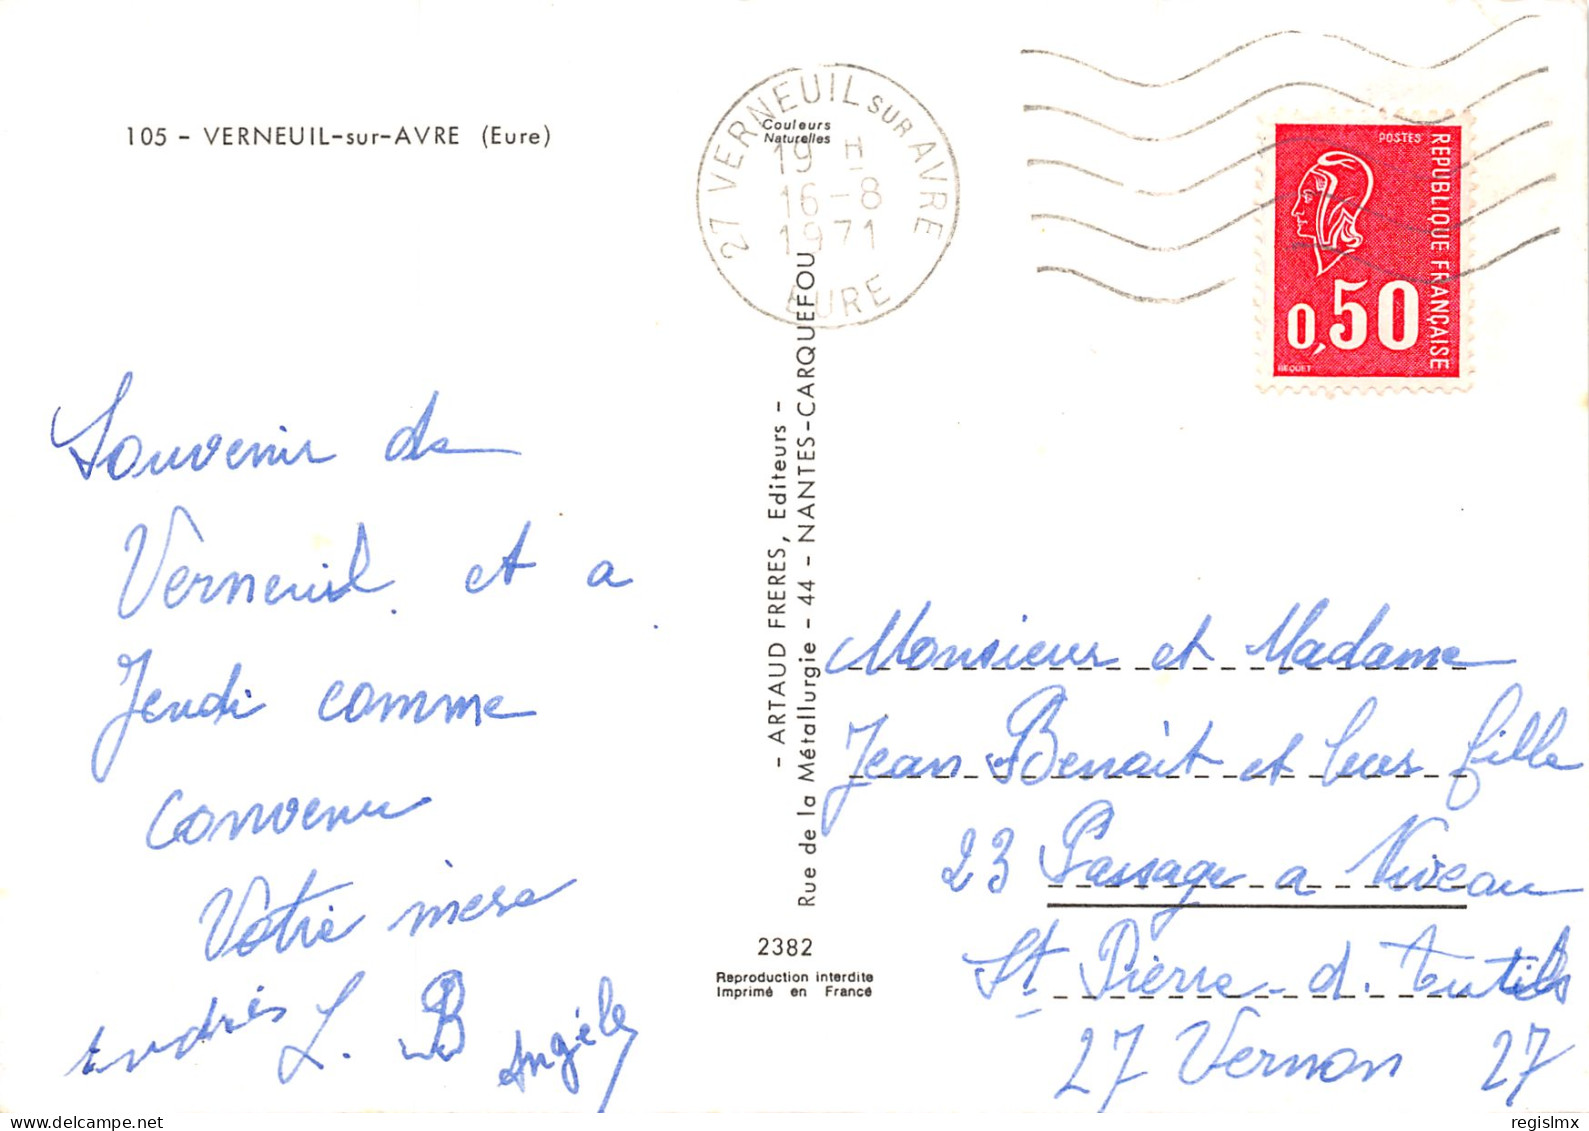 105 - VERNEUIL-sur-AVRE (Eure)
Couleurs
Naturelles
27 VERNEUIL SUR AVRE
19 H
16-8
1971
EURE
POSTES
REPUBLIQUE FRANÇAISE
0,50
BEQUET
Souvenir de
Verneuil et a
Jeudi comme
convenu
Votre mere
L. B Angèle
- ARTAUD FRERES, Editeurs -
Rue de la Métallurgie - 44 - NANTES-CARQUEFOU
2382
Reproduction interdite
Imprimé en France
Monsieur et Madame
Jean Benoit et leur fille
23 Passage a Niveau
St Pierre d. Autils
27 Vernon 27
delcampe.net
regislmx